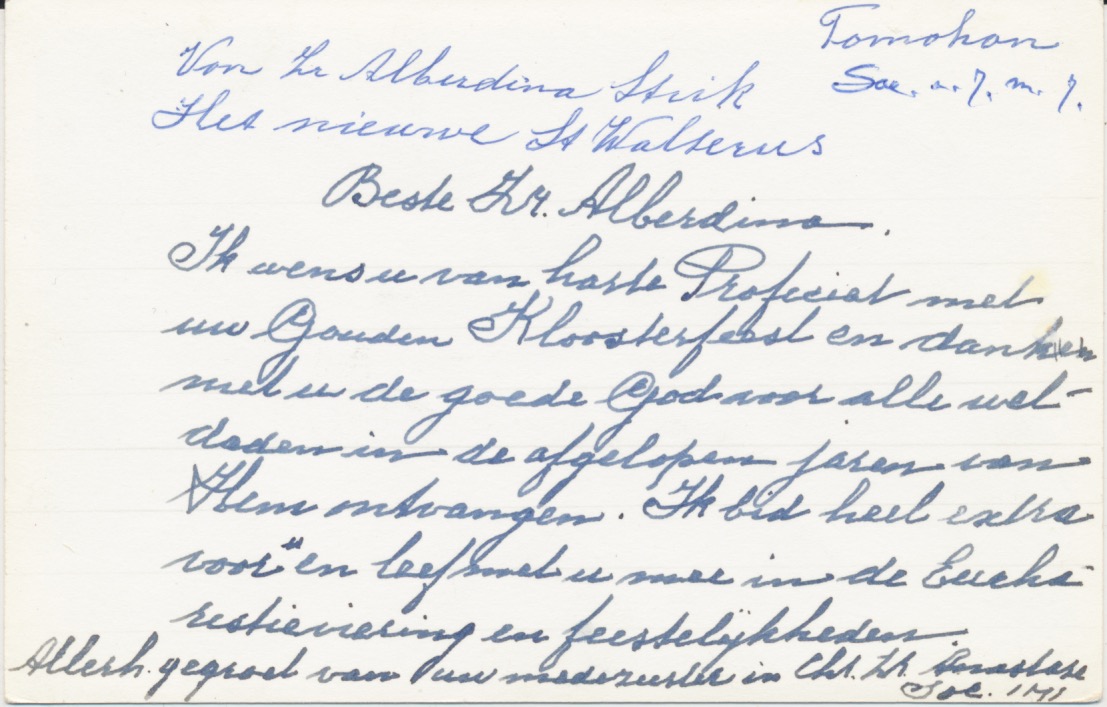 Tomohon
Soc. a. J. m. J.
Van Zr Alberdina Strik
Het nieuwe St Walterus
Beste Zr. Alberdina.
Ik wens u van harte Proficiat met
uw Gouden Kloosterfeest en danken
met u de goede God voor alle wel-
daden in de afgelopen jaren van
Hem ontvangen. Ik bid heel extra
voor u en leef met u mee in de Eucha-
ristieviering en feestelijkheden.
Allerh. gegroet van uw medezuster in Chr. Zr.
Soc.